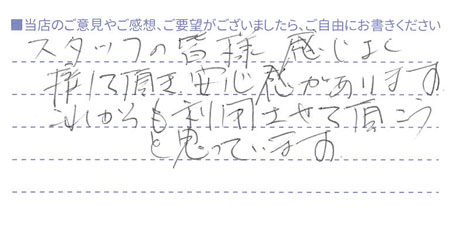 ■当店のご意見やご感想、ご要望がございましたら、ご自由にお書きください
スタッフの皆様 感じよく
接して頂き 安心感があります
これからも利用させて頂こう
と思っています